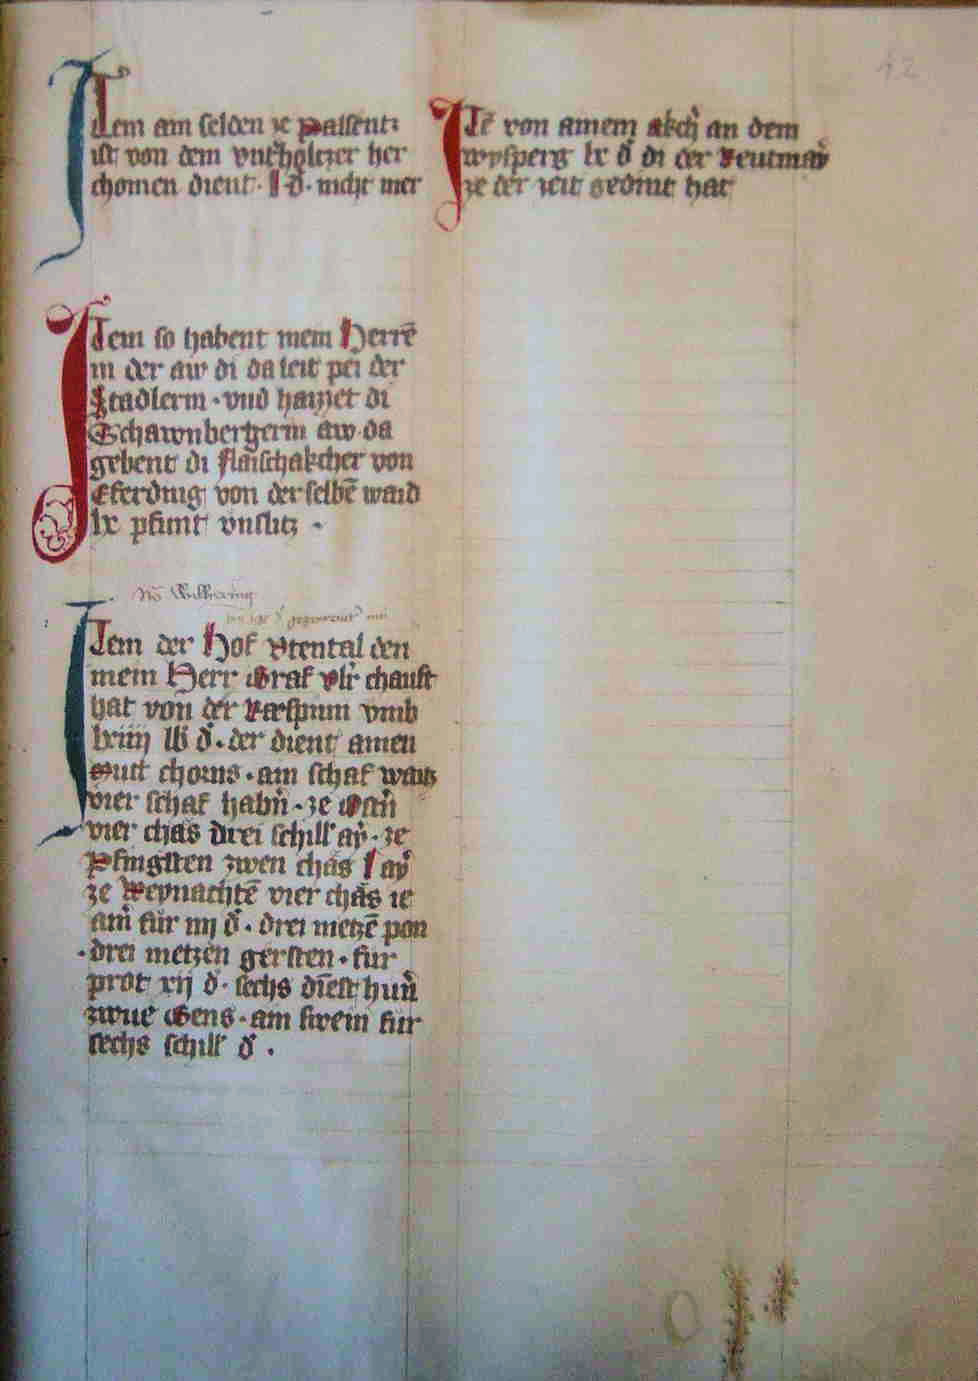 Item ain selden ze Palsentz
ist von dem vnthholtzer her
chomen dient · l · d · nicht mer
Item so habent mein Herrē
in der aw di da leit pei der
Stadlerin · vnd haizzet di
Schawnbergerin aw · da
gebent di flaischakcher von
Eferding von der selbē waid
lx pfunt vnslitz ·
Nō Wilhering
Item der Hof vtental den
mein Herr Graf vlr chauft
hat von der vmb
lxiiij lb d · der dient ainen
Mutt chorns · ain schaf waitz
vier schaf habn · ze
vier chäs drei schill ay · ze
Pfingsten zwen chäs l ay
ze Weynachtē vier chäs ie
ain für iiij d · drei metzē pon
· drei metzen gersten · für
prot xij d · sechs dīest hun
zwue Gens · ain swein für
sechs schill d ·
Itē von ainem akch an dem
wysperg lx d di der Reutmayr
ze der zeit gedint hat
42